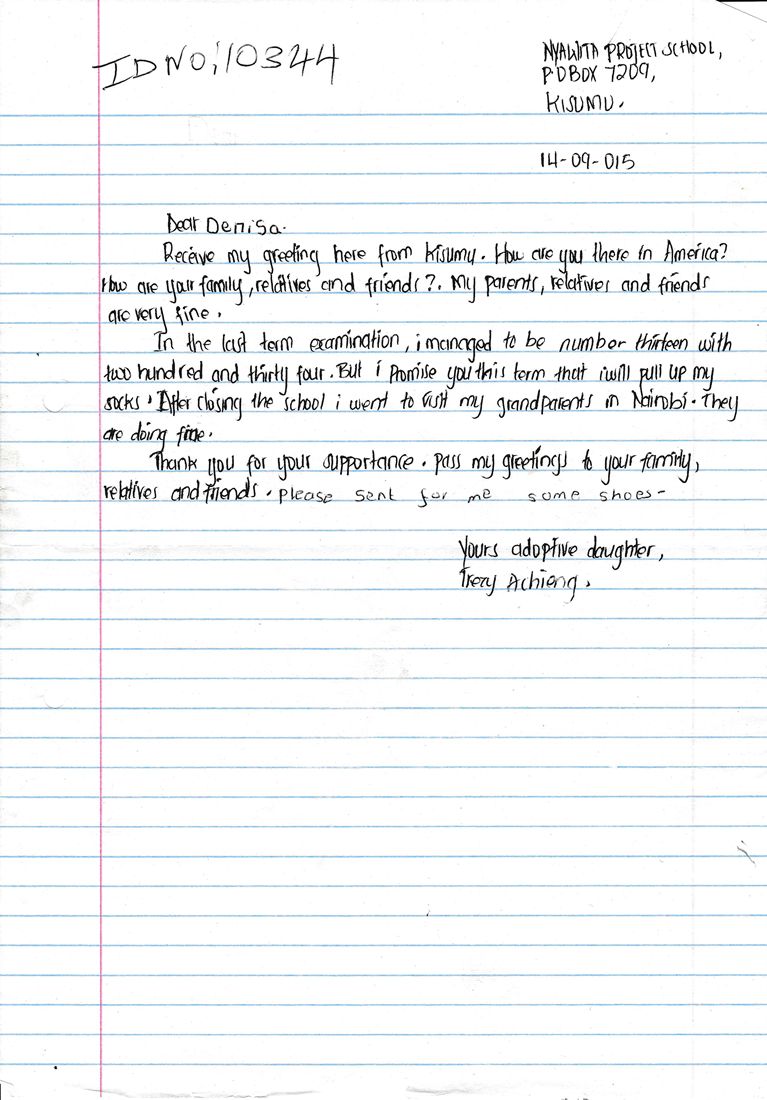 ID NO; 10344
NYAWITA PROJECT SCHOOL,
P.O BOX 7209,
KISUMU.
14-09-015
Dear Denisa.
Receive my greeting here from Kisumu. How are you there in America?
How are your family, relatives and friends?. My parents, relatives and friends
are very fine.
In the last term examination, i managed to be number thirteen with
two hundred and thirty four. But i promise you this term that i will pull up my
socks. After closing the school i went to visit my grandparents in Nairobi. They
are doing fine.
Thank you for your supportance. Pass my greetings to your family,
relatives and friends. please sent for me some shoes-
Yours adoptive daughter,
Achieng.